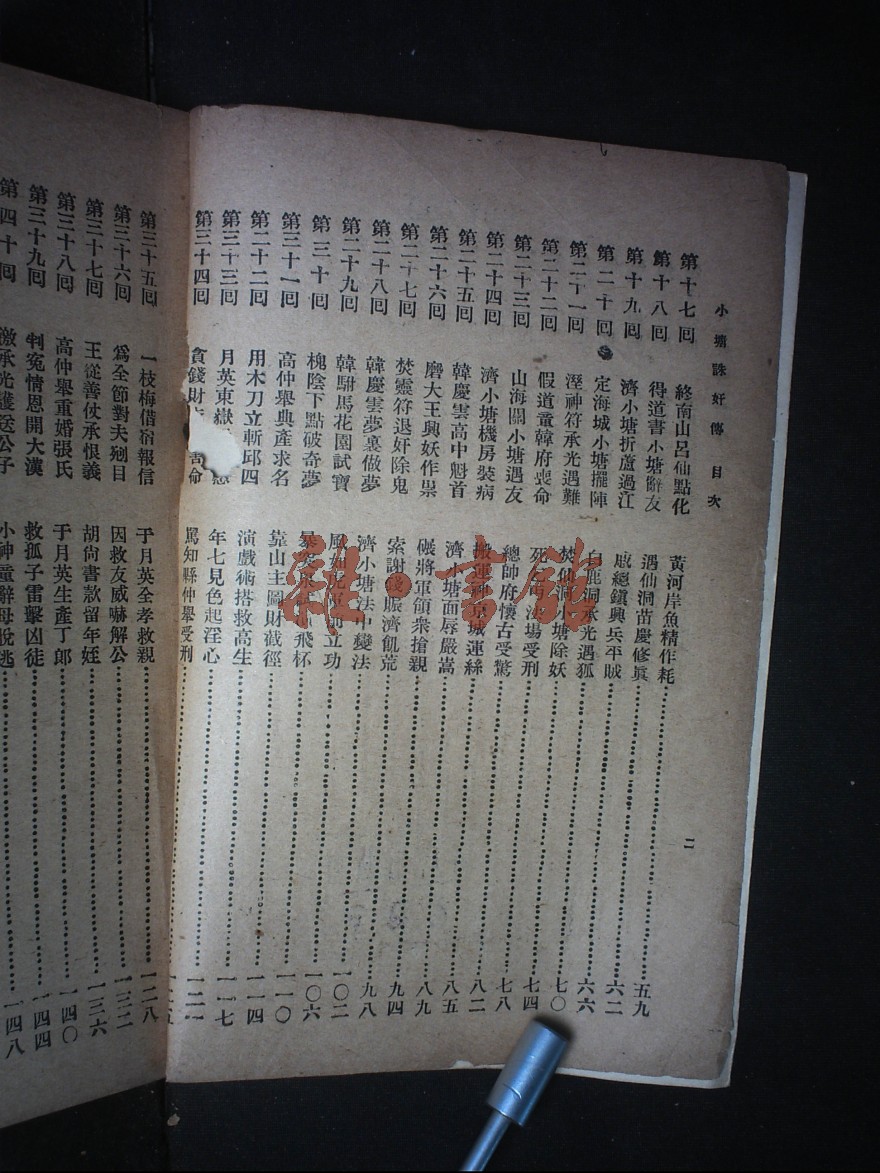 小塘誅奸傳 目次
二
第十七回 終南山呂仙點化 黃河岸魚精作耗 五九
第十八回 得道書小塘辭友 遇仙洞苗慶修眞 六二
第十九回 濟小塘折蘆過江 戚總鎭興兵平賊
第二十回 定海城小塘擺陣 白鹿洞承光遇狐 六六
第二十一回 溼神符承光遇難 焚仙洞小塘除妖 七〇
第二十二回 假道童韓府喪命 法場受刑 七四
第二十三回 山海關小塘遇友 總帥府懷古受驚 七八
第二十四回 濟小塘機房裝病 搬運神京城運絲 八二
第二十五回 韓慶雲高中魁首 濟小塘面辱嚴嵩 八五
第二十六回 磨大王興妖作祟 碾將軍領衆搶親 八九
第二十七回 焚靈符退奸除鬼 索謝錢賑濟飢荒 九四
第二十八回 韓慶雲夢裏做夢 濟小塘法中變法 九八
第二十九回 韓駙馬花園試寶 立功 一〇二
第三十回 槐陰下點破奇夢 飛杯 一〇六
第三十一回 高仲舉典產求名 靠山主圖財截徑 一一〇
第三十二回 用木刀立斬邱四 演戲術搭救高生 一一四
第三十三回 月英東嶽 年七見色起淫心 一一七
第三十四回 貪錢財 命 罵知縣仲舉受刑
第三十五回 一枝梅借宿報信 于月英全孝救親 一二八
第三十六回 爲全節對夫剜目 因救友威嚇解公 一三二
第三十七回 王從善仗承恨義 胡尙書款留年姪 一三六
第三十八回 高仲舉重婚張氏 于月英生產丁郎 一四〇
第三十九回 判冤情恩開大漢 救孤子雷擊凶徒 一四四
第四十回 激承光護送公子 小神童辭母脫逃 一四八
雜·書館